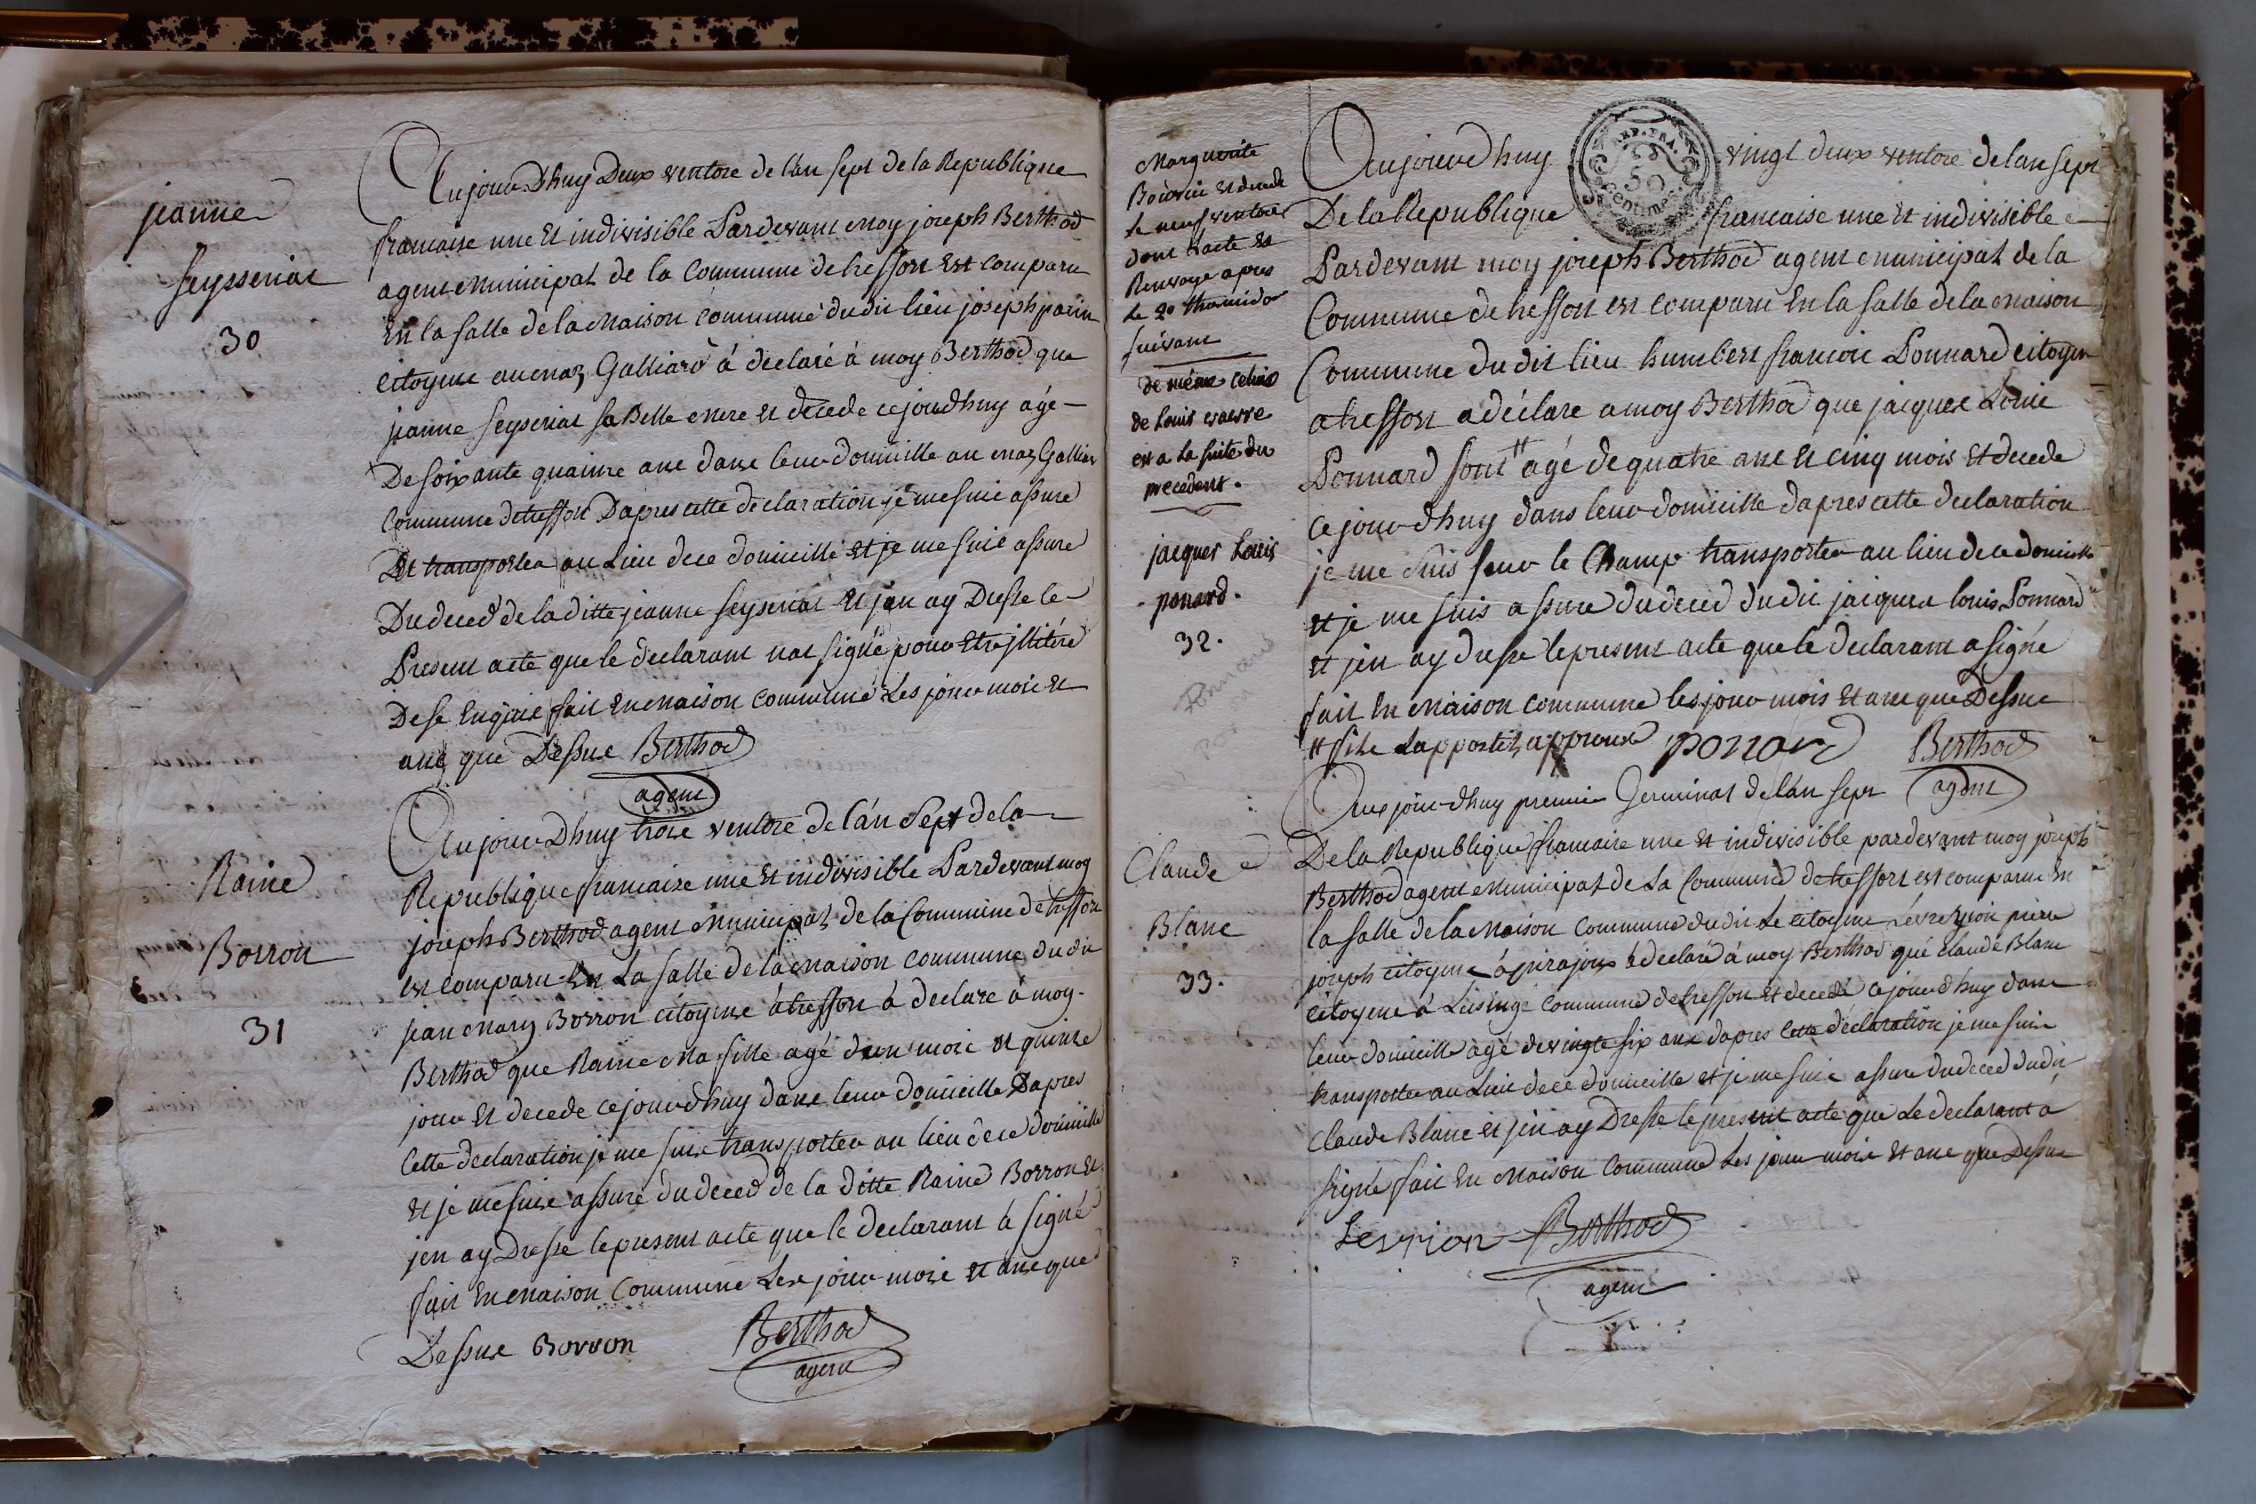 jeanne
seysseriat
30
Aujour Dhuy Deux ventose de lan sept de la Republique
francaise une Et indivisible Pardevant moy joseph Berthod
agent Municipal de la Commune detreffort Est comparu
En la salle de la Maison Commune dudit lieu joseph
citoyens au maz Galliard à déclaré à moy Berthod que
jeanne seyseriat sa Belle mere Et décédé cejourdhuy agé
De soixante quainze ans dans leur domicille au maz Galliar
Commune detreffort Dapres cette déclaration je me suis assuré
Et transporter au Lieu dece domicille et je me suis assure
Du deced de la ditte jeanne seyseriat Et jen ay Dresse le
Present acte que le declarant nat signé pour Etre jlliteré
Dese Enquis fait En Maison Commune Les jour mois et
ans que Dessus Berthod
agent
Raine
Borron
31
Aujour Dhuy trois ventose de lan Sept de la
Republique francaise une Et indivisible Pardevant moy
joseph Berthod agent Municipal de la Commune detreffort
est comparu En La salle de la maison commune dudit
jean Borron citoyens àtreffort à declare à moy
Berthod que Raine Ma fille agé dun mois et quinze
jour Et decede cejourdhuy dans leur domicille Dapres
Cette declaration je me suis transporter au lieu dece domicille
et je me suis assure du deced de la ditte Raine Borron Et
jen ay Dresse le present acte que le declarant à signé
fait En maison Commune Les jour mois et ans que
Dessus Borron Berthod
agent
Marguerite
et decede
le neuf ventose
dont lacte est
Renvoyé apres
Le 20 thermidor
suivant
de même celui
de Louis
est a la suite du
precedent.
jacques Louis
ponard.
32.
Ponnard
Aujourdhuy vingt deux ventose de lan sept
REP. FRA.
50
Centimes
De la Republique francaise une et indivisible
Pardevant moy joseph Berthod agent municipal de la
Commune detreffort est comparu En la salle de la maison
Commune dudit lieu humbert francois Ponnard citoyen
atreffort a déclare a moy Berthod que jacques Louis
Ponnard sont # agé de quatre ans et cinq mois Et decede
ce jourdhuy dans leur domicille dapres cette declaration
je me suis sur le Champ transporter au lieu dece domicille
et je me suis assure du deced dudit jacques louis Ponnard
et jen ay dresse le present acte que le declarant a signé
fait En Maison Commune les jour mois et ans que Dessus
# fils Lappostil approuve ponard Berthod
agent
Claude
Blanc
33.
Aux jourdhuy premier Germinal de lan sept
De la Republique francaise une et indivisible pardevant moy joseph
Berthod agent Municipal de La Commune detreffort est comparu En
la salle de la Maison Commune dudit Le citoyens pierre
joseph citoyens à déclaré à moy Berthod que Claude Blanc
citoyens à Lusinge commune detreffort et decedé cejourdhuy dans
leur domicille agé devingte six ans dapres cette declaration je me suis
transporter au Lieu dece domicille et je me suis assure du deced dudit
Claude Blanc et jen ay Dresse le present acte que Le declarant à
signé fait En Maison Commune Les jour mois et ans que Dessus
Levrion Berthod
agent